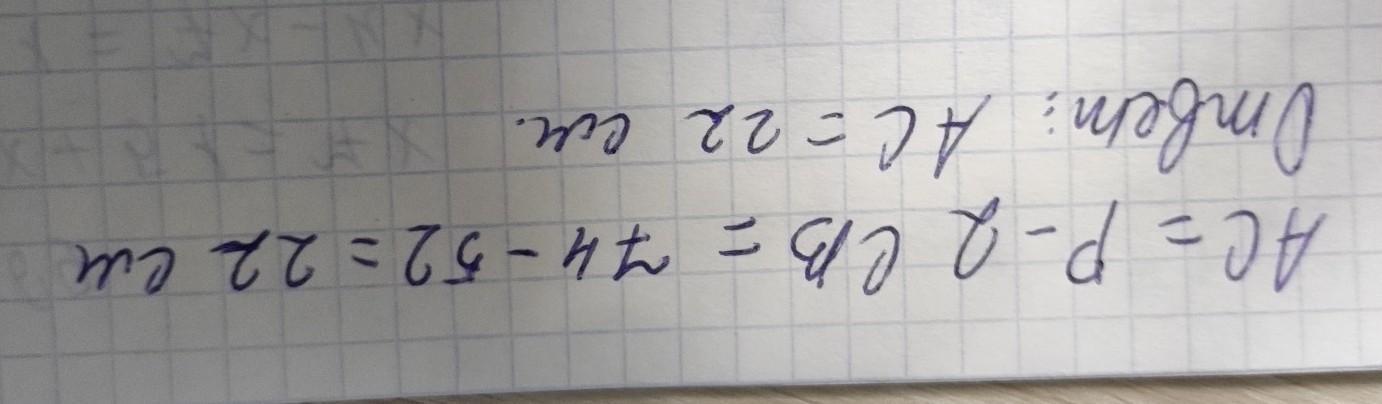 AC = P - 2 CB = 74 - 52 = 22 см
Ответ: AC = 22 см.